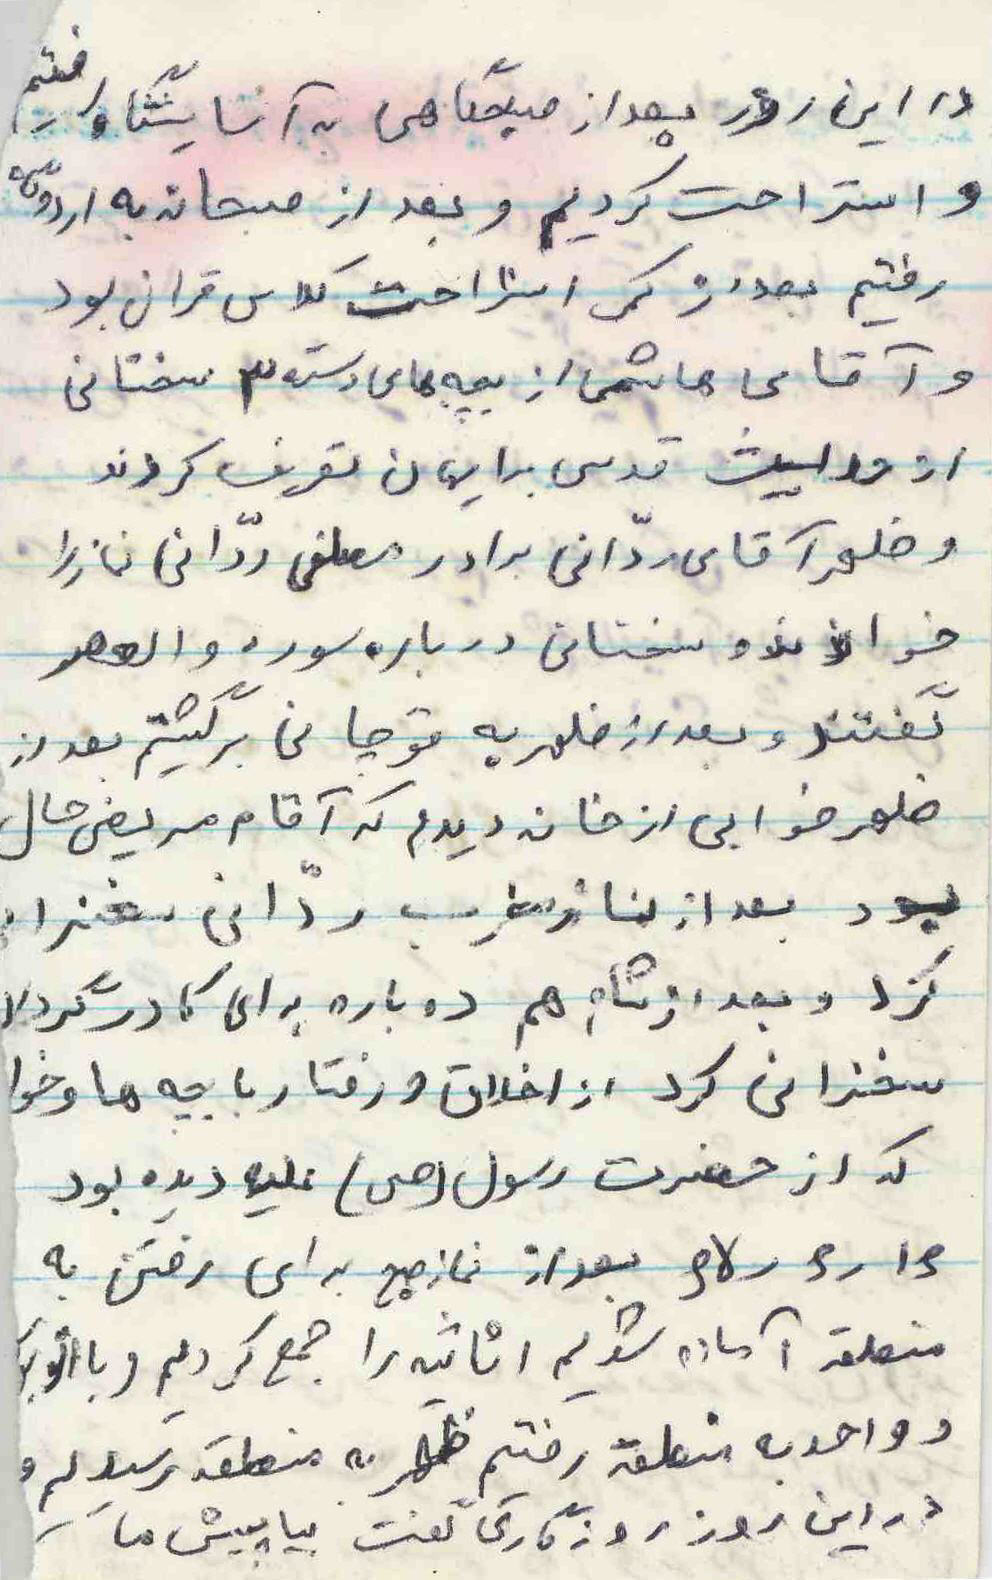 در این روز بعد از صبحگاهی به آسایشگاه رفتیم
و استراحت کردیم و بعد از صبحانه به اردوگاه
رفتیم بعد از کمی استراحت کلاس قران بود
و آقای هاشمی از بچه‌های دسته ۳ سخنانی
از قدسی برایمان تعریف کردند
و ظهر آقای ردّانی برادر مصطفی ردّانی نماز را
خواندند و سخنانی درباره سوره والعصر
گفتند و بعد از ظهر به قوچانی برگشتیم بعد از
ظهر خوابی از خانه دیدم که آقام مریض حال
بود بعد از نماز مغرب ردّانی سخنرا
کرد و بعد از شام هم دوباره برای کادر گردا
سخنرانی کرد از اخلاق و رفتار با بچه ها و خوا
که از حضرت رسول (ص) علیه دیده بود
بعد از نماز صبح برای رفتن به
منطقه آماده شدیم اثاثیه را جمع کردیم و با
و واحد به منطقه رفتیم ظهر به منطقه رسیدیم و
در این روز روزگاری گفت بیا پیش ما